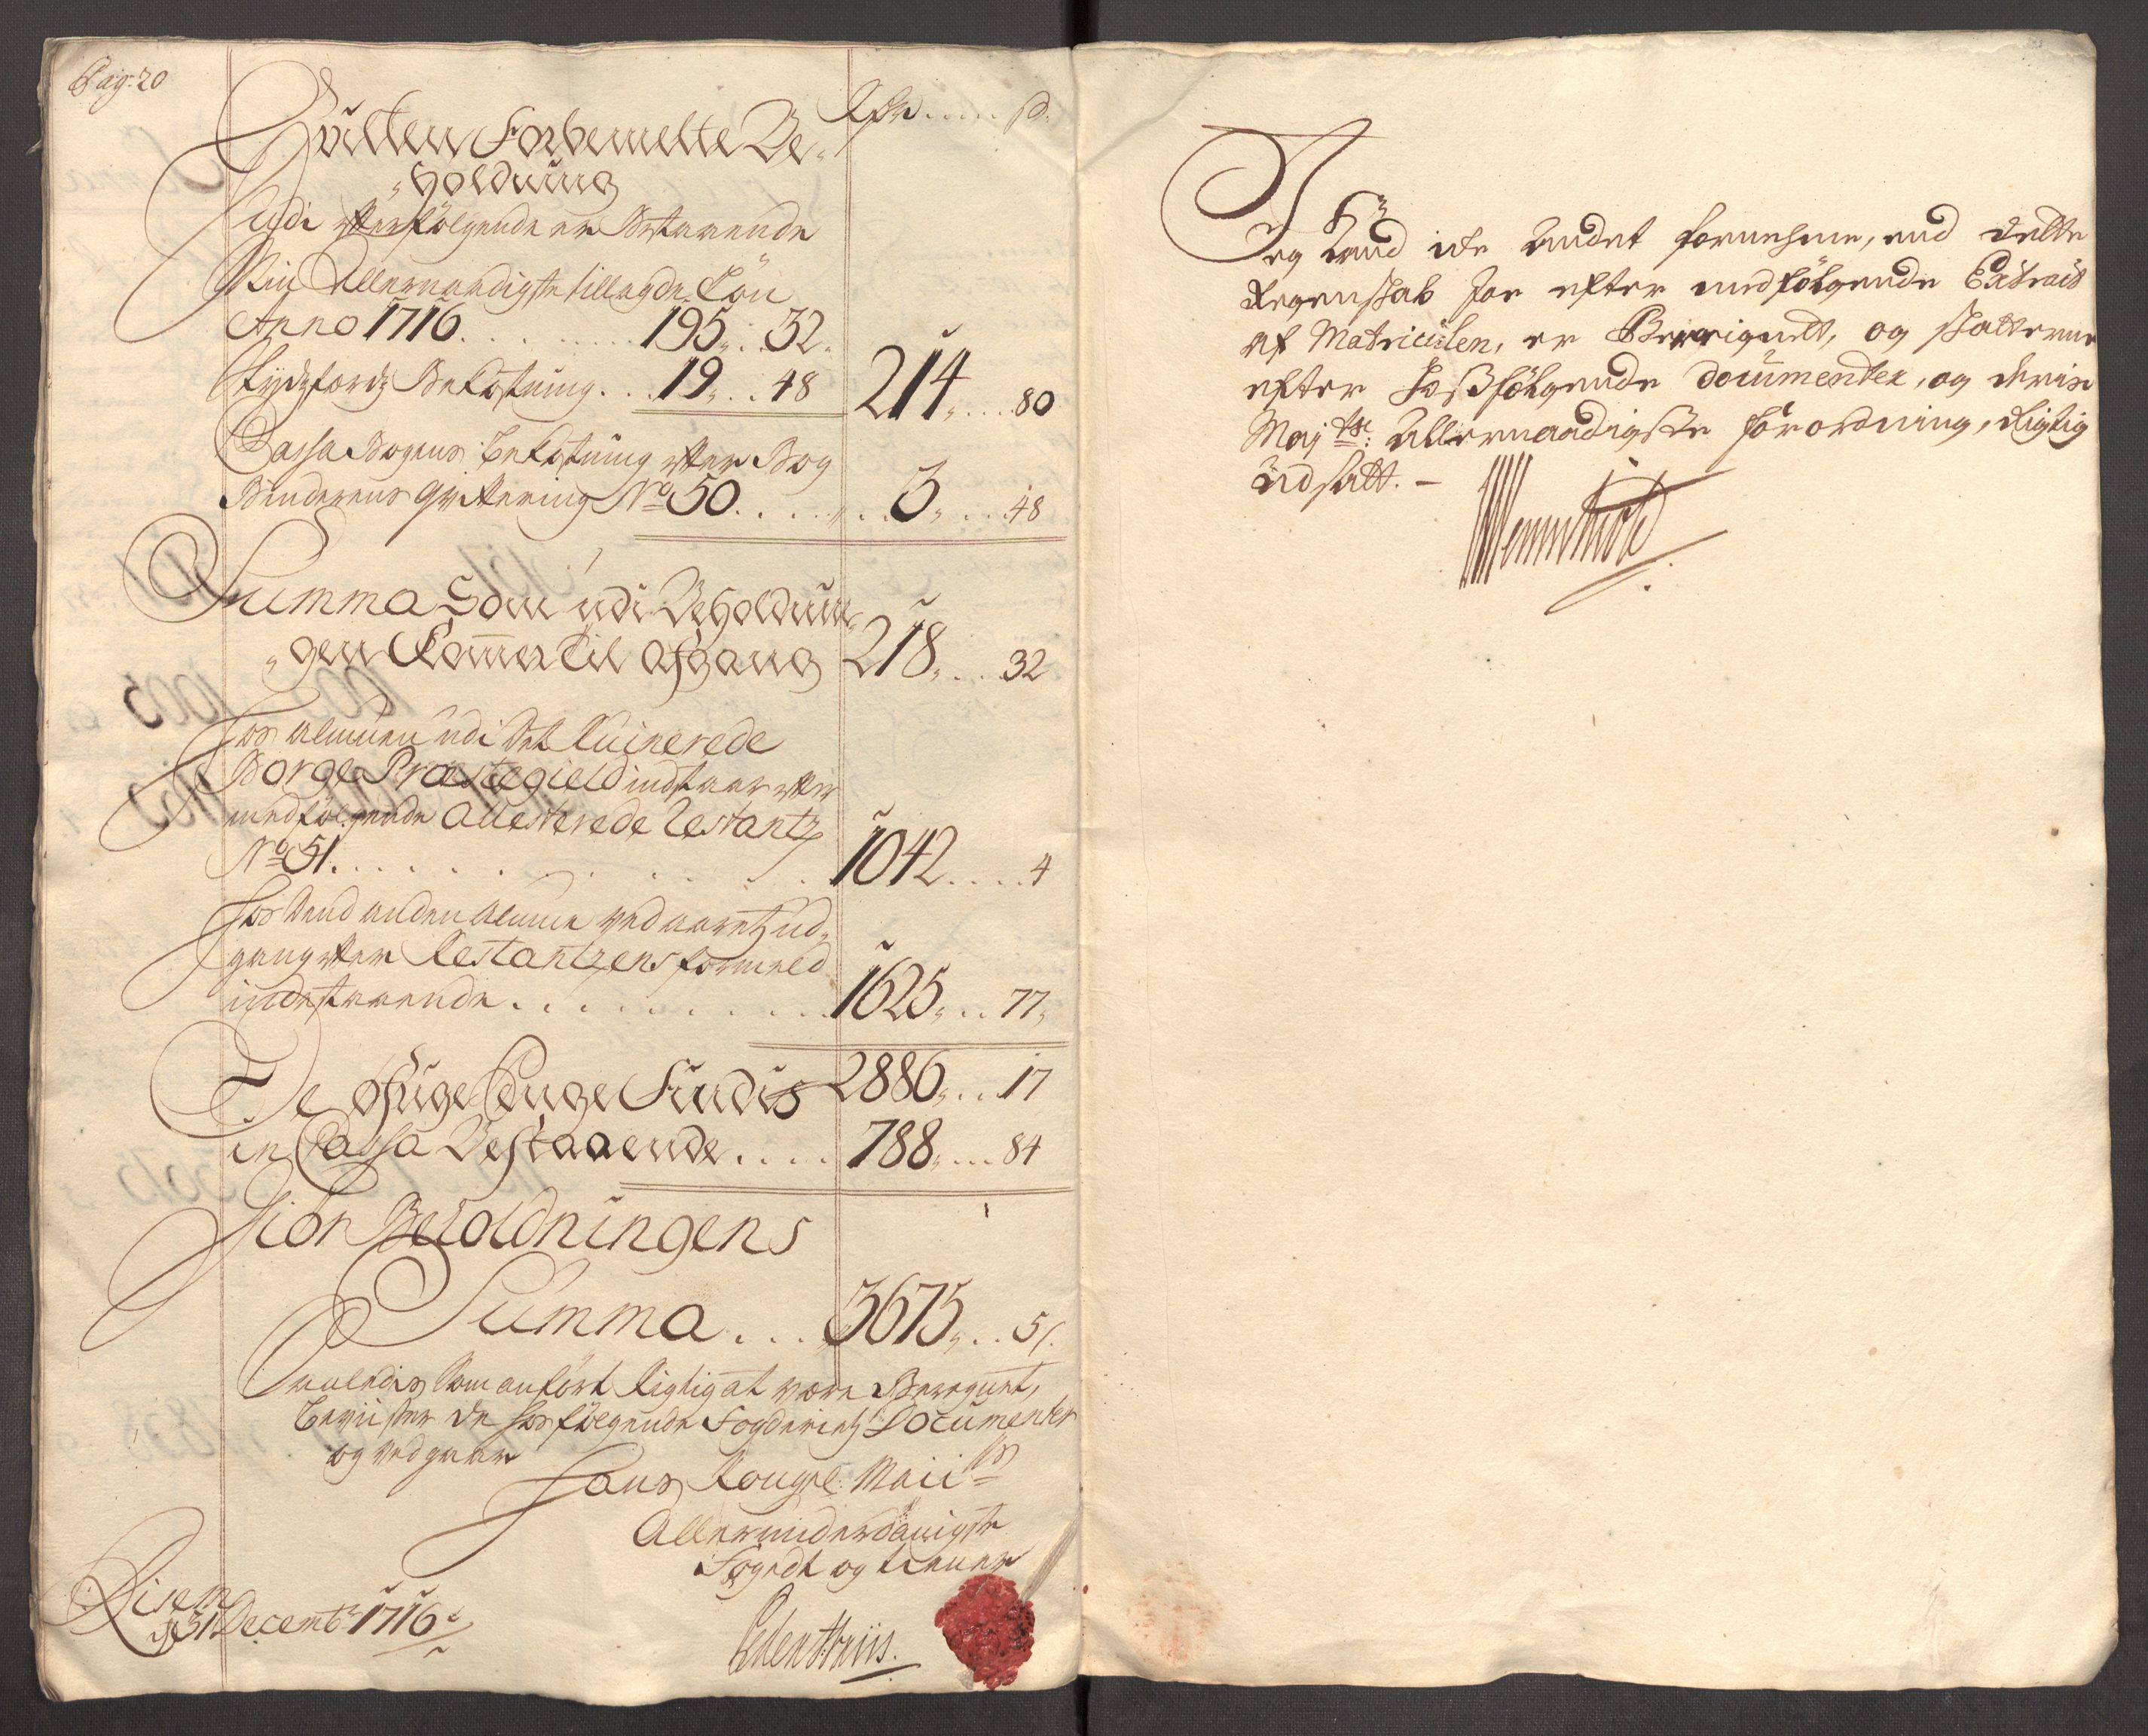 Pag: 20
Rdr ..... s:
Hvilken Forbemelte Be-
"holdning
Udi efterfölgende er Bestaaende
Min Allernaadigste tillagde Lön
Anno 1716 . . . . . . . 195 „ . 32 „
Skydzferdz Bekostning . . . 19 „ . . 48 214 „ . . . . 80
Cassa Bogens bekostning efter Bog
Binderens Qvittering No 50 . . . . . . 3 „ . . . 48
Summa Som udi Beholdnin-
"gen Kommer til afgang 218 „ . . . 32
Hos almuen udi det Ruinerede
Borge Præstegield indstaar efter
medfölgende Attesterede Restantz
No 51 . . . . . . . . . 1042 . . . . . 4
Hos dend anden almue ved aaretz ud-
gang efter Restantzens formeld
indestaaende . . . . . . . . . . 1625 „ . . 77 „
2886 „ . . 17
De øfrige Penge Findis
in Cassa Bestaaende . . . . 788 „ . . . 84
Giör Beholdningens
Summa . . . 3675 „ . . 5 „
Saaledis som anfört Rigtig at være Beregnet,
beviiser de hosfölgende Fogderietz Documenter
og vedgaar
Hans Kongel: Maiits
Allerunderdanigste
Fogedt og tiener
Risen
d 31 Decembr 1716
Peter

Jeg kand icke Andet fornehme, end dette
Regenskab jo efter medfölgende Extract
af Matriculen, er Berigned, og skatterne
efter hoßfölgende documenter, og deris
Mayts: Allernaadigste forordning, Rigtig
udsatt. -